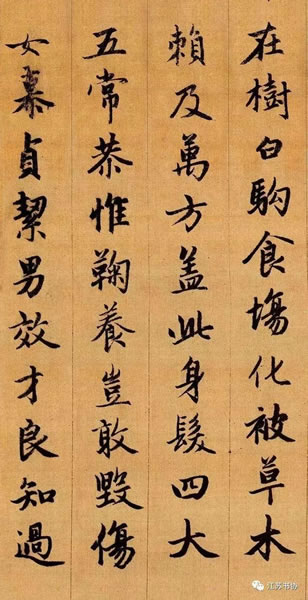 在樹白駒食場化被草木
賴及萬方盖此身髮四大
五常恭惟鞠養豈敢毀傷
女慕貞絜男效才良知過
江苏书协